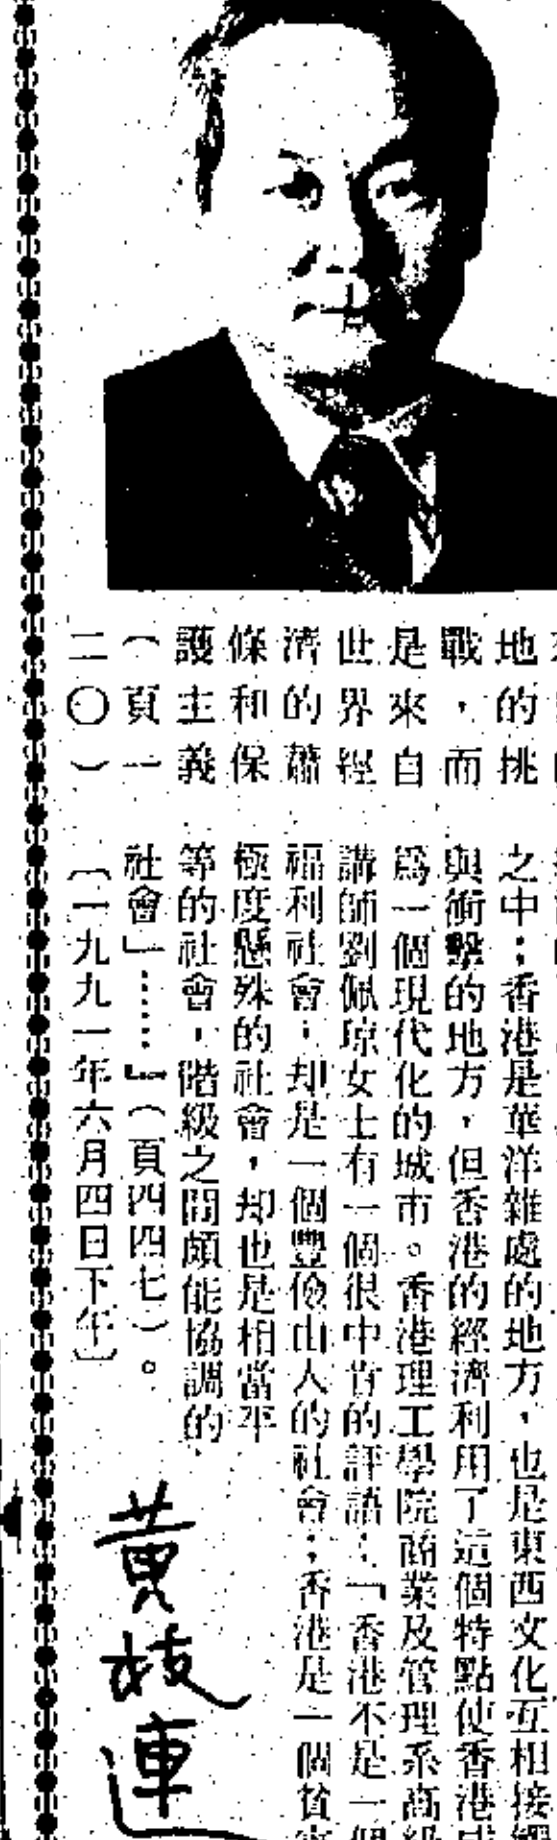 地的挑
戰，而
是來自
世界經
濟的蕭
條和保
護主義
（頁一
二〇）
之中；香港是華洋雜處的地方，也是東西文化互相接觸
與衝擊的地方，但香港的經濟利用了這個特點使香港成
為一個現代化的城市。香港理工學院商業及管理系高級
講師劉佩琼女士有一個很中肯的評語：「香港不是一個
福利社會；却是一個豐儉由人的社會；香港是一個貧富
極度懸殊的社會，却也是相當平
等的社會，階級之間頗能協調的
社會」……』（頁四四七）。
〔一九九一年六月四日下午〕
黃枝連